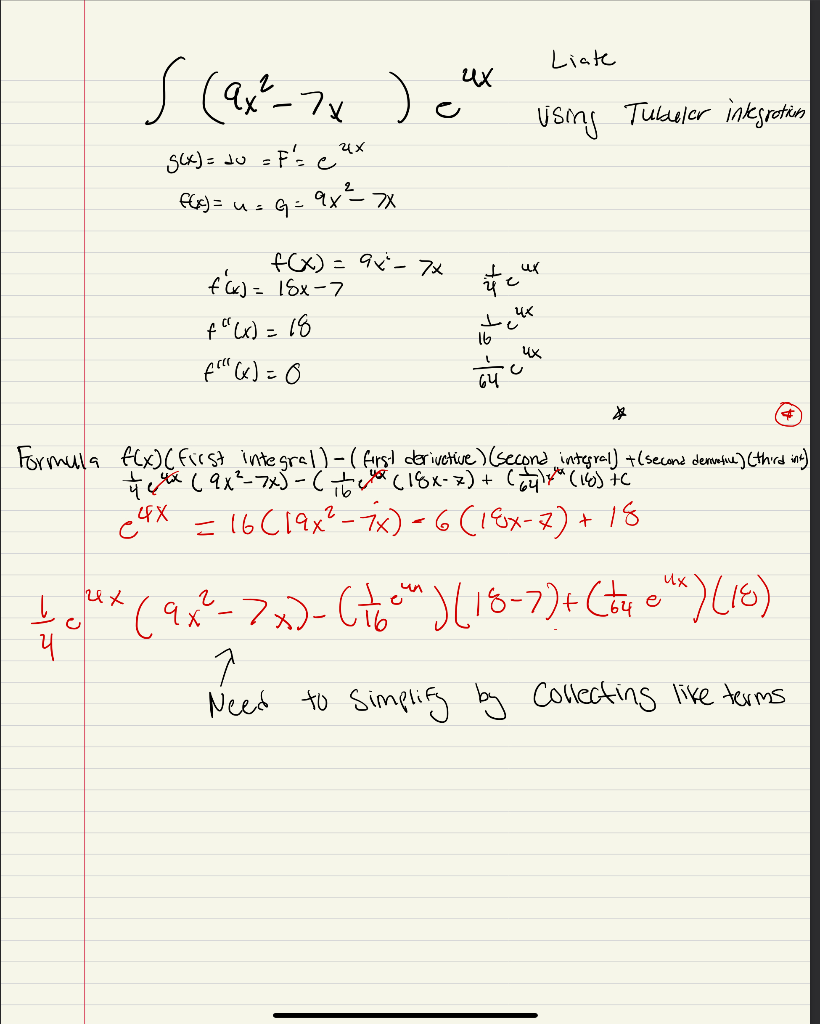 ∫ (9x² - 7x ) e^4x Liate
Using Tubular integration
g(x) = dv = F' = e^4x
f(x) = u = G = 9x² - 7x
f(x) = 9x² - 7x 1/4 e^4x
f'(x) = 18x - 7
f''(x) = 18 1/16 e^4x
f'''(x) = 0 1/64 e^4x
Formula f(x)(first integral) - (first derivative)(second integral) + (second derivative)(third int)
1/4 e^4x (9x² - 7x) - (1/16 e^4x (18x - 7) + (1/64) e^4x (18) + C
e^4x = 16(19x² - 7x) - 6(18x - 7) + 18
1/4 e^4x (9x² - 7x) - (1/16 e^4x)(18 - 7) + (1/64 e^4x)(18)
Need to simplify by collecting like terms